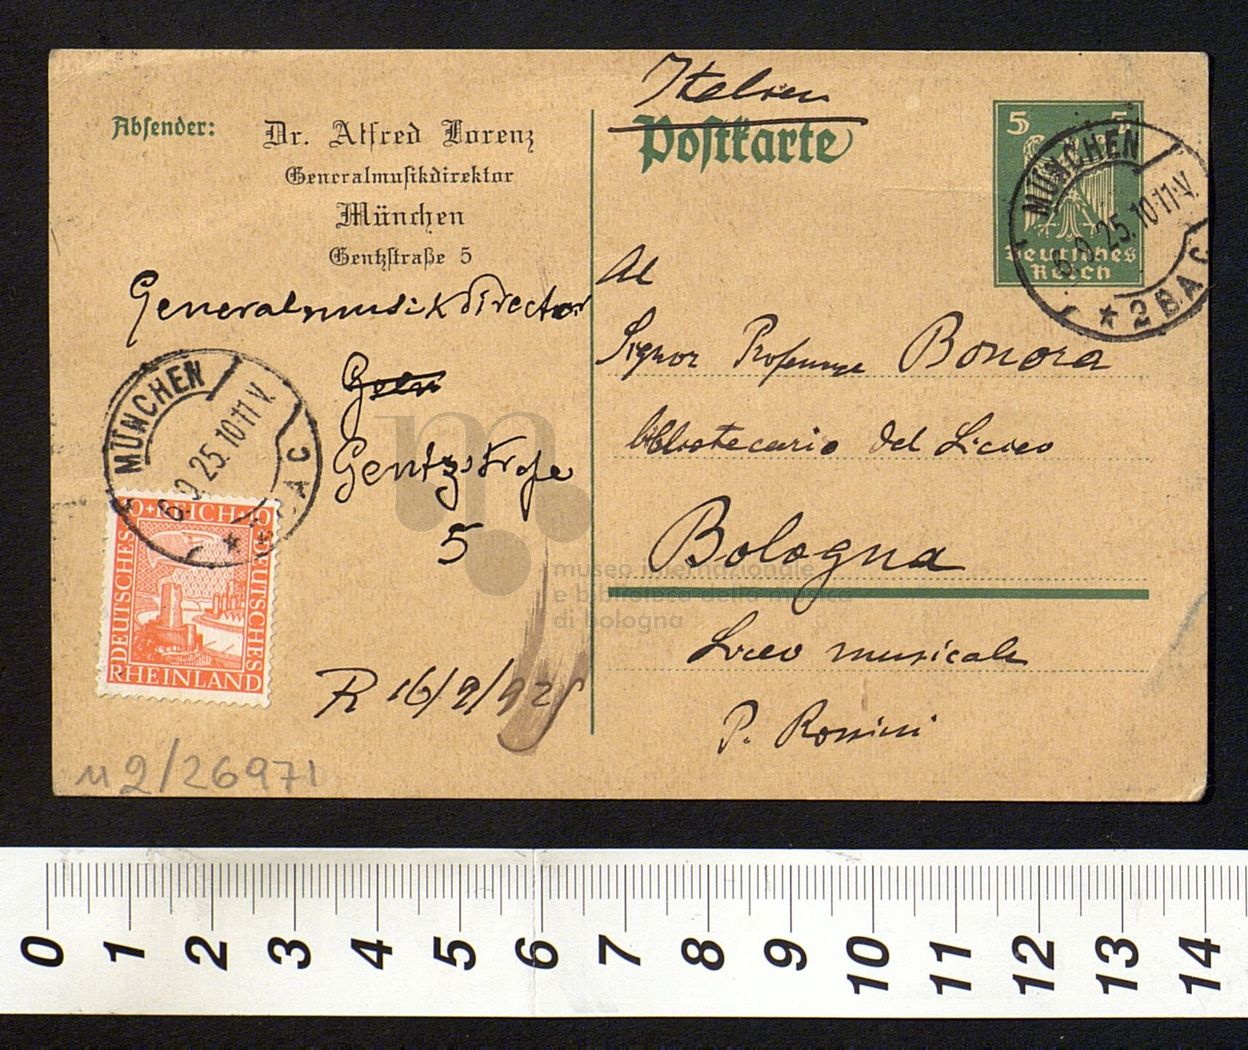 Italien
Absender:
Dr. Alfred Lorenz
Generalmusikdirektor
München
Gentzstraße 5
Generalmusikdirector
Gentzstrasse
5
R 16/9/925
n 2/26971
Postkarte
Al
Signor Professore Bonora
bibliotecario del Liceo
Bologna
Liceo musicale
P. Rossini
5 5
Deutsches
Reich
MÜNCHEN
6.9.25.10-11V.
* 2 B.A.C
MÜNCHEN
6.9.25.10-11V.
10+REICH+10
DEUTSCHES
DEUTSCHES
RHEINLAND
museo internazionale
e biblioteca della musica
di bologna
0 1 2 3 4 5 6 7 8 9 10 11 12 13 14